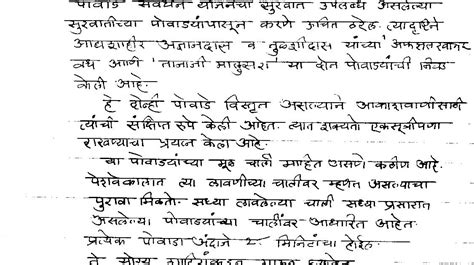 पोवाडे संवर्धन योजनेची सुरवात उपलब्ध असलेल्या
सुरवातीच्या पोवाड्यांपासून करणे उचित ठरेल. त्यादृष्टिने
आद्यशाहीर अज्ञानदास व तुळशीदास यांच्या 'अफझलखानाचा
वध आणि 'तानाजी मालुसरा' या दोन पोवाड्यांची निवड
केली आहे.
हे दोन्ही पोवाडे विस्तृत असल्याने आकाशवाणीसाठी
त्यांची संक्षिप्त रुपे केली आहेत. त्यात शक्यतो एकसूत्रीपणा
राखण्याचा प्रयत्न केला आहे.
या पोवाड्यांच्या मूळ चाली माहीत असणे कठीण आहे.
पेशवेकालात त्या लावणीच्या चालीवर म्हणत असल्याचा
पुरावा मिळतो. सध्या लावलेल्या चाली सध्या प्रसारात
असलेल्या पोवाड्यांच्या चालींवर आधारित आहेत.
प्रत्येक पोवाडा अंदाजे मिनिटांचा होईल.
ते योग्य शाहिरांकडून